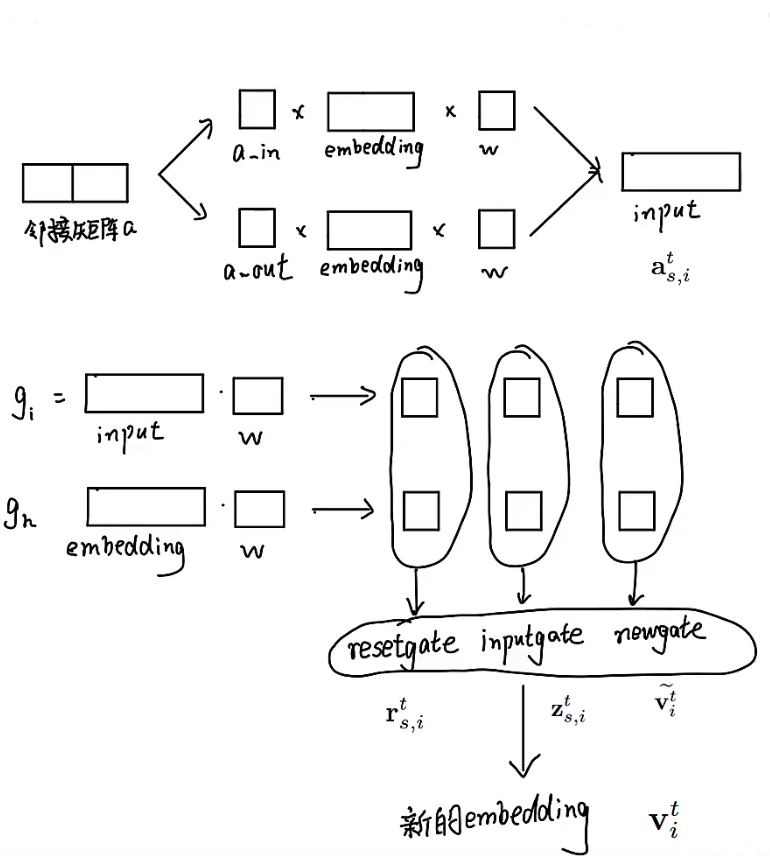 a_in × embedding × w
邻接矩阵a
a_out × embedding × w
input
a^t_{s,i}
g_i = input · w
g_h embedding · w
resetgate inputgate newgate
r^t_{s,i} z^t_{s,i} ṽ^t_i
新的embedding v^t_i